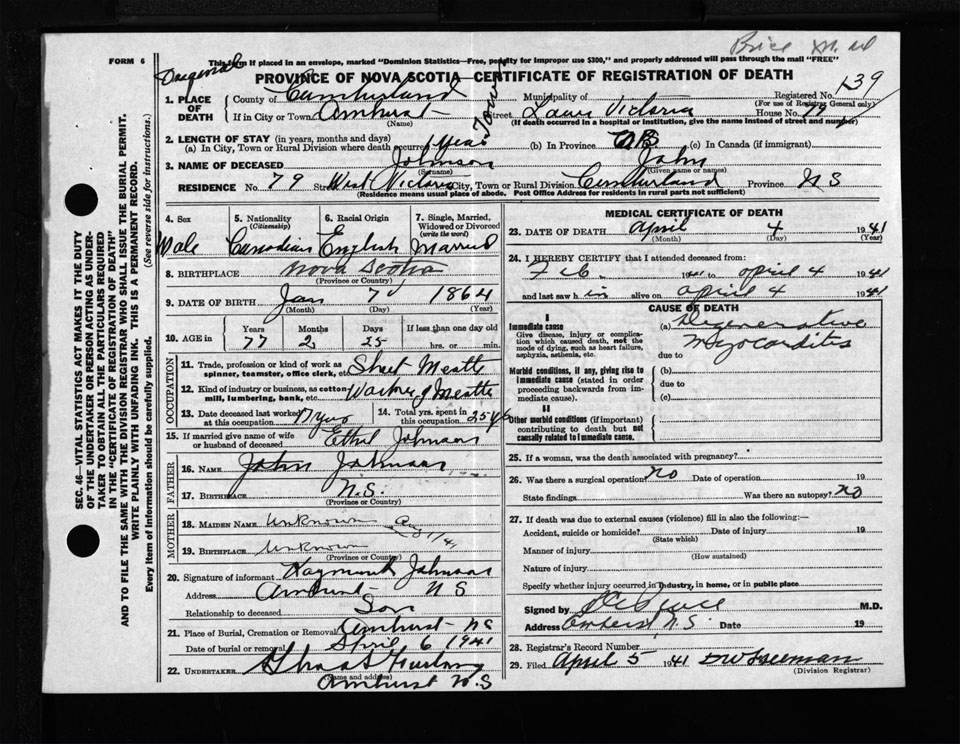 Brice M.D
FORM 6
This form if placed in an envelope, marked "Dominion Statistics—Free, penalty for improper use $300," and properly addressed will pass through the mail "FREE"
PROVINCE OF NOVA SCOTIA—CERTIFICATE OF REGISTRATION OF DEATH
Registered No. 139
(For use of Registrar General only)
1. PLACE OF DEATH
County of Cumberland
Municipality of
If in City or Town Amherst
(Name)
Street Victoria House No. 79
(If death occurred in a hospital or institution, give the name instead of street and number)
2. LENGTH OF STAY (in years, months and days)
(a) In City, Town or Rural Division where death occurred
(b) In Province
(c) In Canada (if immigrant)
3. NAME OF DECEASED Johnson John
(Surname) (Given name or names)
RESIDENCE No. 79 Street West Victoria City, Town or Rural Division Cumberland Province N S
(Residence means usual place of abode. Post Office Address for residents in rural parts not sufficient)
4. Sex
Male
5. Nationality
(Citizenship)
Canadian
6. Racial Origin
English
7. Single, Married, Widowed or Divorced
(write the word)
Married
8. BIRTHPLACE Nova Scotia
(Province or Country)
9. DATE OF BIRTH Jan 7 1864
(Month) (Day) (Year)
10. AGE in
Years 77
Months 2
Days 25
If less than one day old
hrs. or min.
OCCUPATION
11. Trade, profession or kind of work as spinner, teamster, office clerk, etc. Sheet
12. Kind of industry or business, as cotton-mill, lumbering, bank, etc.
13. Date deceased last worked at this occupation 17 yrs
14. Total yrs. spent in this occupation 25 yrs
15. If married give name of wife or husband of deceased Ethel Johnson
FATHER
16. NAME John Johnson
17. BIRTHPLACE N.S.
(Province or Country)
MOTHER
18. MAIDEN NAME Unknown
19. BIRTHPLACE Unknown
(Province or Country)
20. Signature of informant Raymond Johnson
Address Amherst N S
Relationship to deceased Son
21. Place of Burial, Cremation or Removal Amherst NS
Date of burial or removal April 6 1941
22. UNDERTAKER
(Name and address)
Amherst N.S
MEDICAL CERTIFICATE OF DEATH
23. DATE OF DEATH April 4 1941
(Month) (Day) (Year)
24. I HEREBY CERTIFY that I attended deceased from:
Feb to April 4 1941
and last saw him alive on April 4 1941
CAUSE OF DEATH
I
Immediate cause
Give disease, injury or complication which caused death, not the mode of dying, such as heart failure, asphyxia, asthenia, etc.
(a) Degenerative
Myocarditis
due to
Morbid conditions, if any, giving rise to immediate cause (stated in order proceeding backwards from immediate cause).
(b)
due to
(c)
II
Other morbid conditions (if important) contributing to death but not causally related to immediate cause.
25. If a woman, was the death associated with pregnancy?
26. Was there a surgical operation? no Date of operation 19
State findings Was there an autopsy? no
27. If death was due to external causes (violence) fill in also the following:—
Accident, suicide or homicide? Date of injury 19
(State which)
Manner of injury
(How sustained)
Nature of injury
Specify whether injury occurred in industry, in home, or in public place
Signed by M.D.
Address Amherst N.S. Date 19
28. Registrar's Record Number
29. Filed April 5 1941 D W Freeman
(Division Registrar)
SEC. 46—VITAL STATISTICS ACT MAKES IT THE DUTY
OF THE UNDERTAKER OR PERSON ACTING AS UNDER-
TAKER TO OBTAIN ALL THE PARTICULARS REQUIRED
IN THE "CERTIFICATE OF REGISTRATION OF DEATH"
AND TO FILE THE SAME WITH THE DIVISION REGISTRAR WHO SHALL ISSUE THE BURIAL PERMIT.
WRITE PLAINLY WITH UNFADING INK. THIS IS A PERMANENT RECORD.
Every item of information should be carefully supplied. (See reverse side for instructions.)